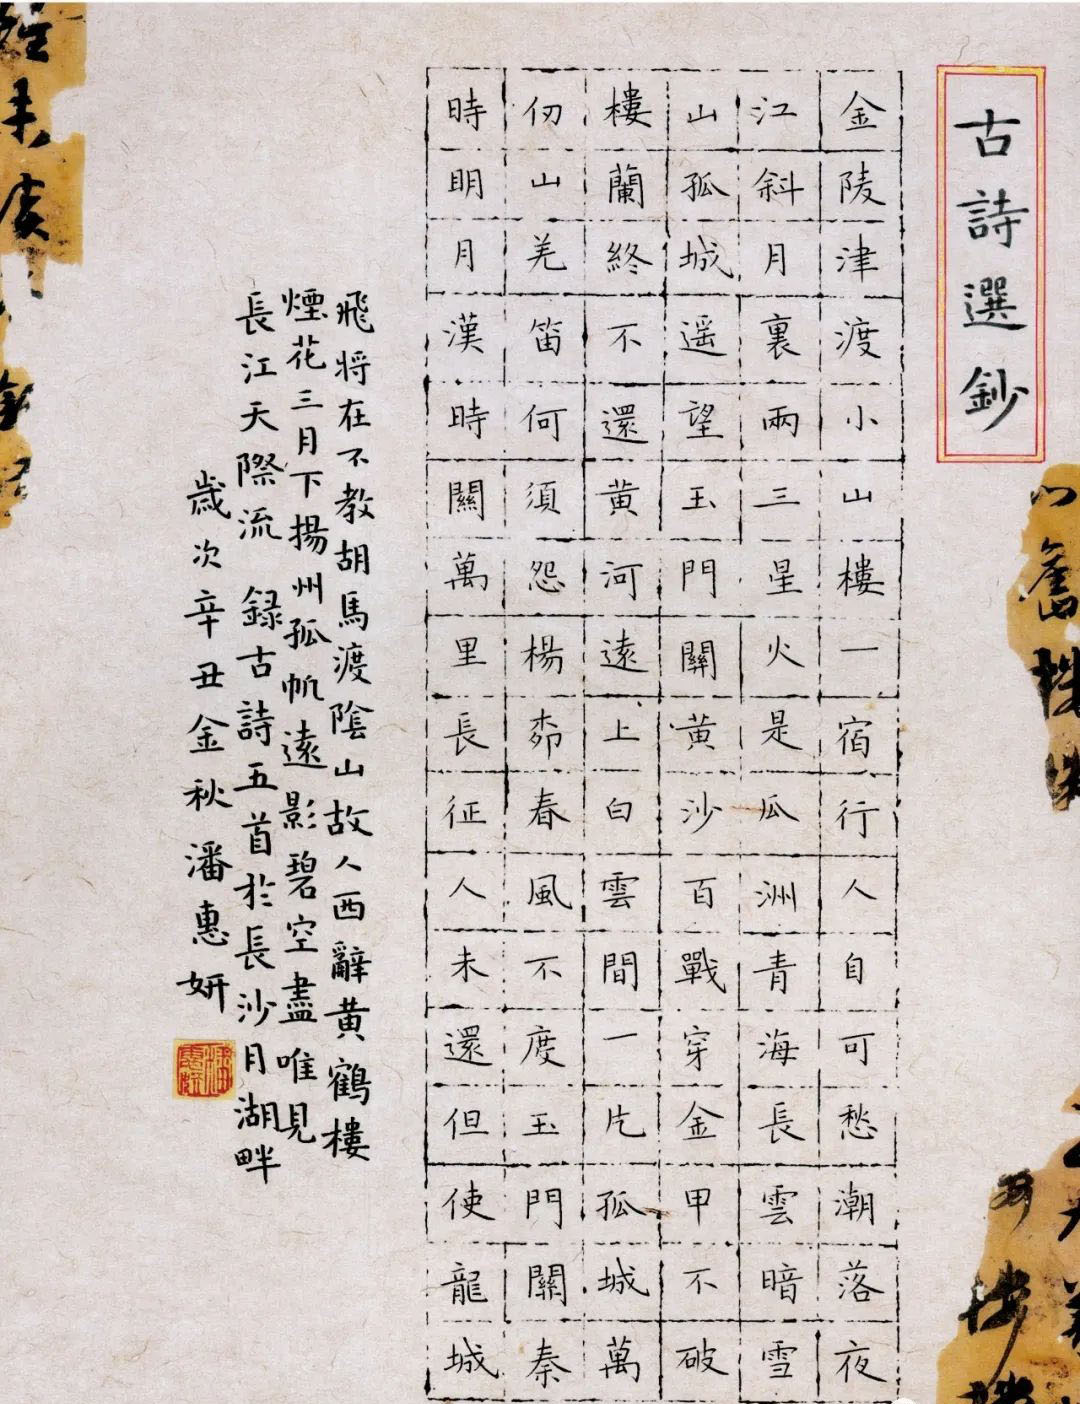 古詩選鈔
金陵津渡小山樓一宿行人自可愁潮落夜
江斜月裏兩三星火是瓜洲青海長雲暗雪
山孤城遥望玉門關黄沙百戰穿金甲不破
樓蘭終不還黄河遠上白雲間一片孤城萬
仞山羌笛何須怨楊桺春風不度玉門關秦
時明月漢時關萬里長征人未還但使龍城
飛将在不教胡馬渡陰山故人西辭黄鶴樓
煙花三月下揚州孤帆遠影碧空盡唯見
長江天際流 録古詩五首於長沙月湖畔
歲次辛丑金秋潘惠妍